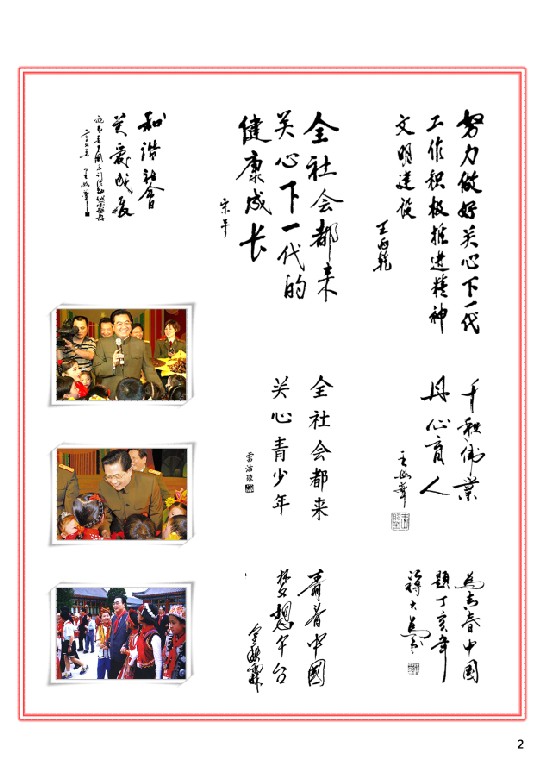 努力做好关心下一代
工作积极推进精神
文明建设
王丙乾
全社会都来
关心下一代的
健康成长
宋平
和谐社会
关爱成長
千秋伟業
丹心育人
全社会都来
关心青少年
雷洁琼
为青春中国
題丁亥年
蒋大为书
青春中國
梦想平台
2